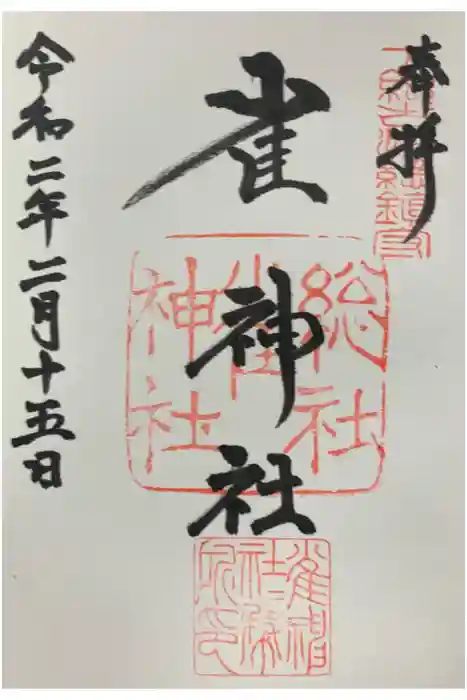 奉拝
総社
雀
神社
雀神社
雀神
社務
所印
令和二年二月十五日